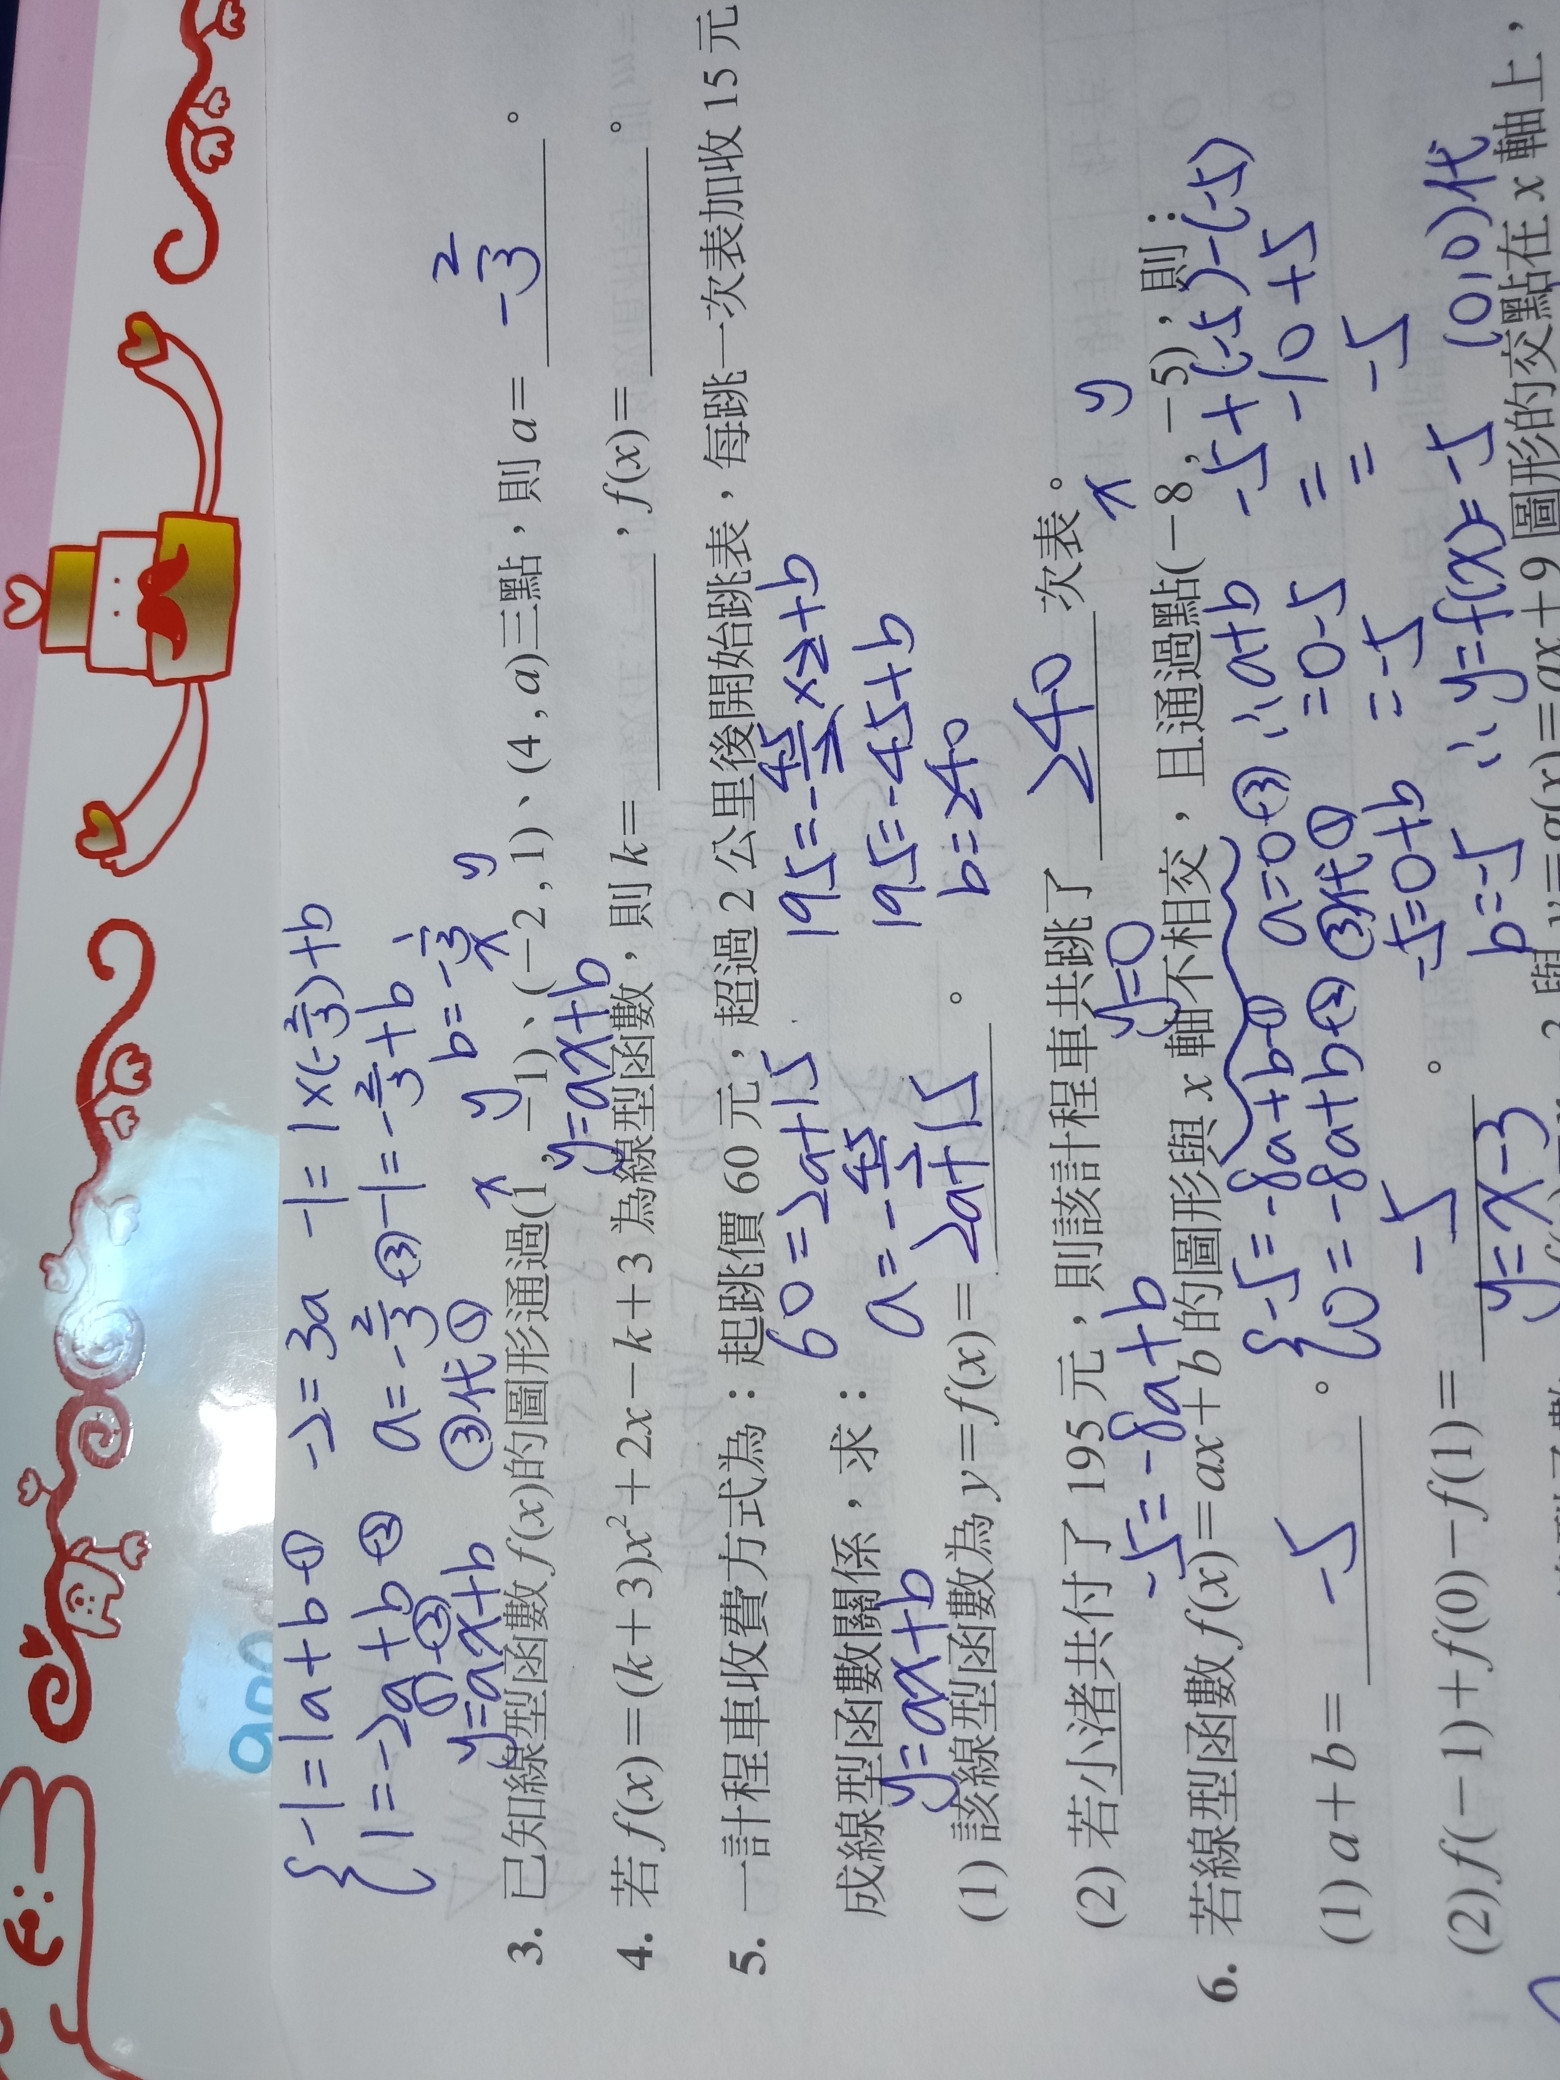 -1=1a+b-① -2=3a -1=1×(-2/3)+b
1=-2a+b-② a=-2/3-③ -1=-2/3+b
①-② ③代① b=-1/3
y=ax+b x y x y
-2/3
3. 已知線型函數 f(x)的圖形通過(1,-1)、(-2,1)、(4,a)三點,則 a=______。
y=ax+b
4. 若 f(x)=(k+3)x²+2x-k+3 為線型函數,則 k=______,f(x)=______。
5. 一計程車收費方式為:起跳價 60 元,超過 2 公里後開始跳表,每跳一次表加收 15 元
60=2a+15 195=-45/2×2+b
成線型函數關係,求:
a=-45/2 195=-45+b
y=ax+b
(1) 該線型函數為 y=f(x)=2a+15。
b=240
(2) 若小渚共付了 195 元,則該計程車共跳了 240 次表。
-5=-8a+b y=0 x y
6. 若線型函數 f(x)=ax+b 的圖形與 x 軸不相交,且通過點(-8,-5),則:
-5=-8a+b-① a=0-③ ∴a+b -5+(-5)-(-5)
0=-8a+b-② ③代① =0-5 =-10+5
(1) a+b=-5。
-5=0+b =-5 =-5
-5 b=-5 ∴y=f(x)=-5 (0,0)代
(2) f(-1)+f(0)-f(1)=______。
y=x-3
y=g(x)=ax+9 圖形的交點在 x 軸上,